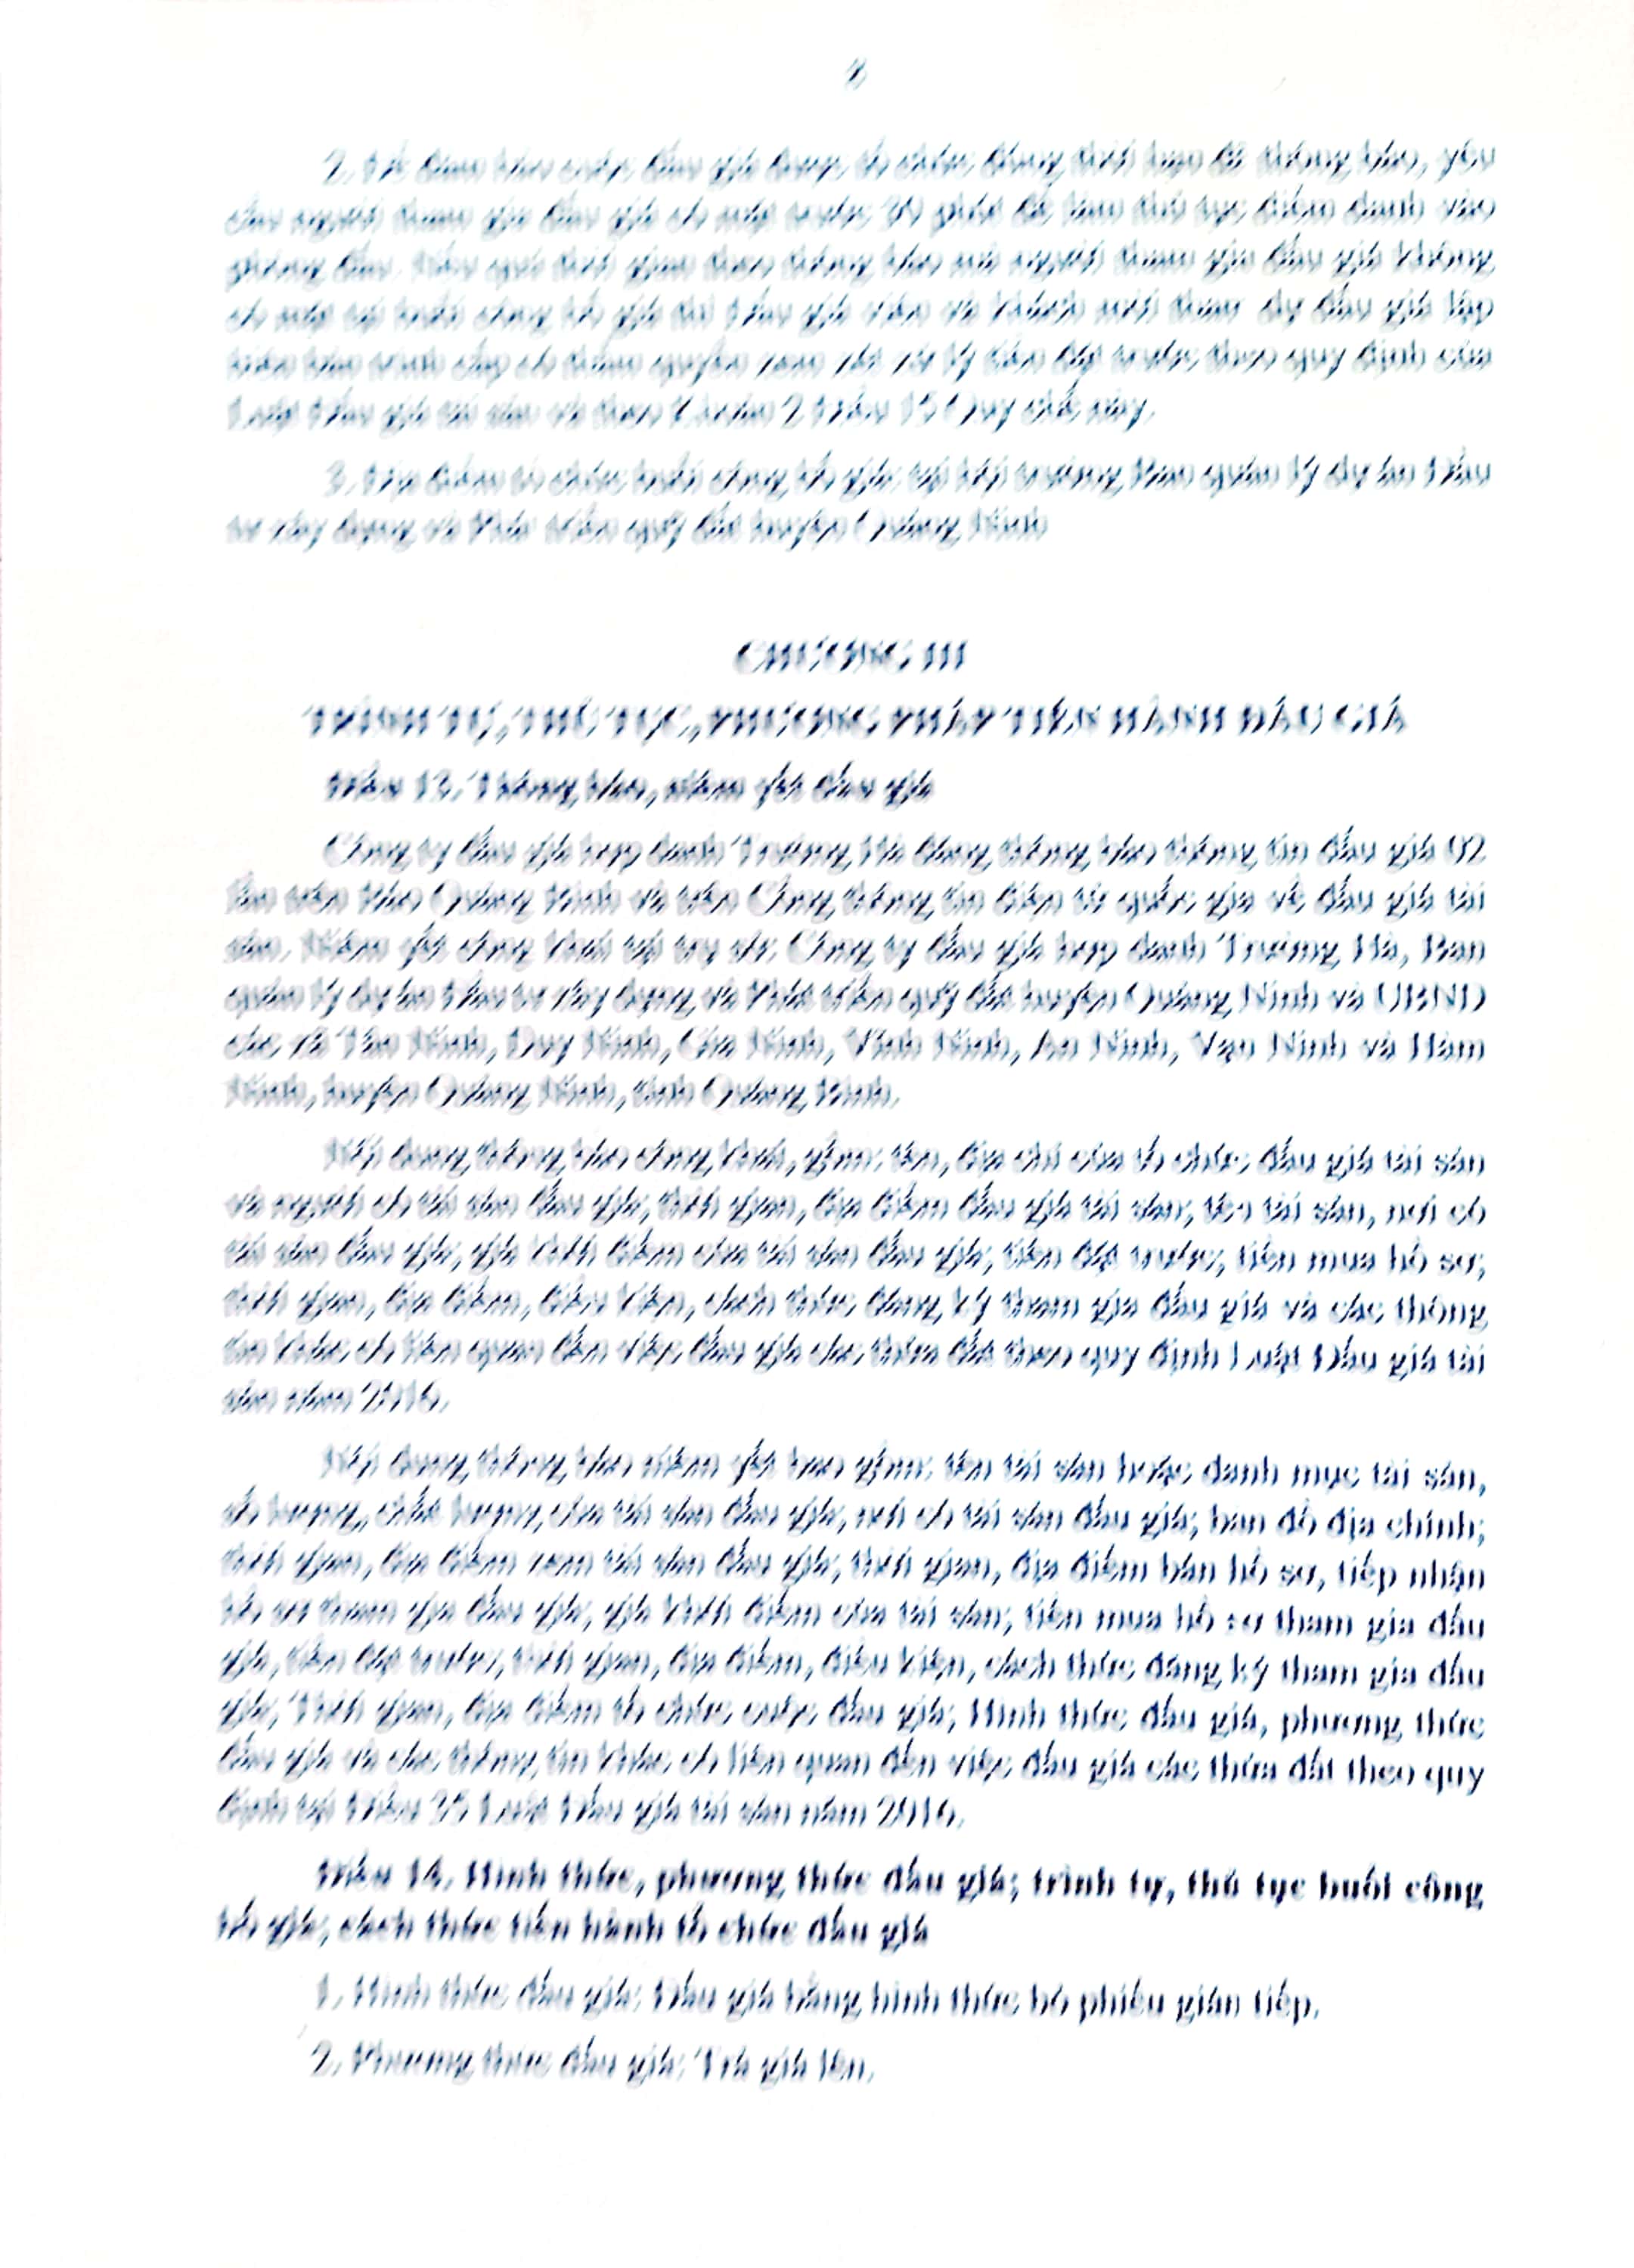 2. Để đảm bảo cuộc đấu giá được tổ chức đúng thời hạn đã thông báo, yêu
cầu người tham gia đấu giá có mặt trước 30 phút để làm thủ tục điểm danh vào
phòng đấu. Nếu quá thời gian theo thông báo mà người tham gia đấu giá không
có mặt tại buổi công bố giá thì Đấu giá viên và khách mời tham dự đấu giá lập
biên bản trình cấp có thẩm quyền xem xét xử lý tiền đặt trước theo quy định của
Luật Đấu giá tài sản và theo Khoản 2 Điều 15 Quy chế này.
3. Địa điểm tổ chức buổi công bố giá: tại hội trường Ban quản lý dự án Đầu
tư xây dựng và Phát triển quỹ đất huyện Quảng Ninh
CHƯƠNG III
TRÌNH TỰ, THỦ TỤC, PHƯƠNG PHÁP TIẾN HÀNH ĐẤU GIÁ
Điều 13. Thông báo, niêm yết đấu giá
Công ty đấu giá hợp danh Trường Hà đăng thông báo thông tin đấu giá 02
lần trên Báo Quảng Bình và trên Cổng thông tin điện tử quốc gia về đấu giá tài
sản. Niêm yết công khai tại trụ sở: Công ty đấu giá hợp danh Trường Hà, Ban
quản lý dự án Đầu tư xây dựng và Phát triển quỹ đất huyện Quảng Ninh và UBND
các xã Tân Ninh, Duy Ninh, Gia Ninh, Vĩnh Ninh, An Ninh, Vạn Ninh và Hàm
Ninh, huyện Quảng Ninh, tỉnh Quảng Bình.
Nội dung thông báo công khai, gồm: tên, địa chỉ của tổ chức đấu giá tài sản
và người có tài sản đấu giá; thời gian, địa điểm đấu giá tài sản; tên tài sản, nơi có
tài sản đấu giá; giá khởi điểm của tài sản đấu giá; tiền đặt trước; tiền mua hồ sơ;
thời gian, địa điểm, điều kiện, cách thức đăng ký tham gia đấu giá và các thông
tin khác có liên quan đến việc đấu giá các thửa đất theo quy định Luật Đấu giá tài
sản năm 2016.
Nội dung thông báo niêm yết bao gồm: tên tài sản hoặc danh mục tài sản,
số lượng, chất lượng của tài sản đấu giá; nơi có tài sản đấu giá; bản đồ địa chính;
thời gian, địa điểm xem tài sản đấu giá; thời gian, địa điểm bán hồ sơ, tiếp nhận
hồ sơ tham gia đấu giá; giá khởi điểm của tài sản; tiền mua hồ sơ tham gia đấu
giá, tiền đặt trước; thời gian, địa điểm, điều kiện, cách thức đăng ký tham gia đấu
giá; Thời gian, địa điểm tổ chức cuộc đấu giá; Hình thức đấu giá, phương thức
đấu giá và các thông tin khác có liên quan đến việc đấu giá các thửa đất theo quy
định tại Điều 35 Luật Đấu giá tài sản năm 2016.
Điều 14. Hình thức, phương thức đấu giá; trình tự, thủ tục buổi công
bố giá; cách thức tiến hành tổ chức đấu giá
1. Hình thức đấu giá: Đấu giá bằng hình thức bỏ phiếu gián tiếp.
2. Phương thức đấu giá: Trả giá lên.